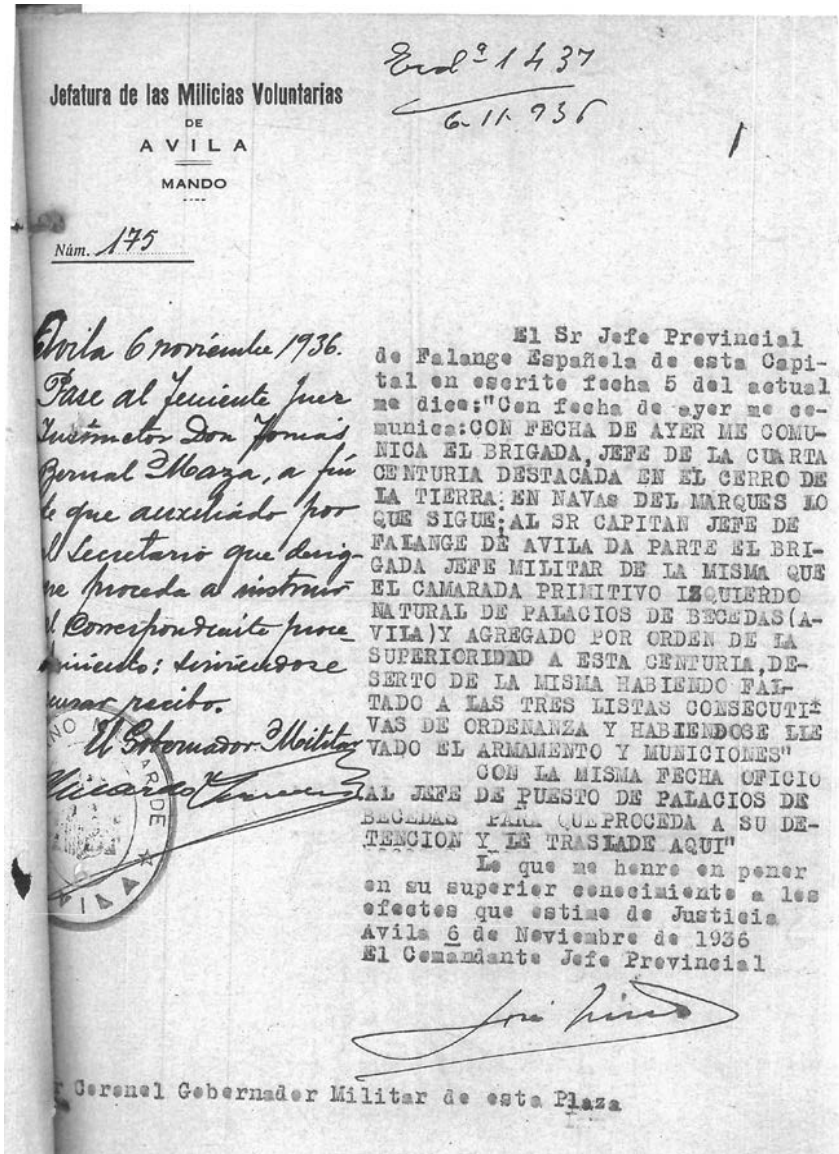 Jefatura de las Milicias Voluntarias
DE
AVILA
MANDO
Núm. 175
Entdª 1437
6-11-936
1
Avila 6 noviembre 1936.
Pase al Teniente Juez
Instructor Don Tomás
Bernal Maza, a fin
de que auxiliado por
el Secretario que desig-
ne proceda a instruir
el correspondiente proce-
dimiento: sirviendose
acusar recibo.
El Gobernador Militar
El Sr Jefe Provincial
de Falange Española de esta Capi-
tal en escrito fecha 5 del actual
me dice:"Con fecha de ayer me co-
munica:CON FECHA DE AYER ME COMU-
NICA EL BRIGADA, JEFE DE LA CUARTA
CENTURIA DESTACADA EN EL CERRO DE
LA TIERRA: EN NAVAS DEL MARQUES LO
QUE SIGUE; AL SR CAPITAN JEFE DE
FALANGE DE AVILA DA PARTE EL BRI-
GADA JEFE MILITAR DE LA MISMA QUE
EL CAMARADA PRIMITIVO IZQUIERDO
NATURAL DE PALACIOS DE BECEDAS(A-
VILA)Y AGREGADO POR ORDEN DE LA
SUPERIORIDAD A ESTA CENTURIA,DE-
SERTO DE LA MISMA HABIENDO FAL-
TADO A LAS TRES LISTAS CONSECUTI-
VAS DE ORDENANZA Y HABIENDOSE LLE
VADO EL ARMAMENTO Y MUNICIONES"
CON LA MISMA FECHA OFICIO
AL JEFE DE PUESTO DE PALACIOS DE
BECEDAS PARA QUEPROCEDA A SU DE-
TENCION Y LE TRASLADE AQUI"
Lo que me honro en poner
en su superior conocimiento a los
efectos que estime de Justicia
Avila 6 de Noviembre de 1936
El Comandante Jefe Provincial
r Coronel Gobernador Militar de esta Plaza